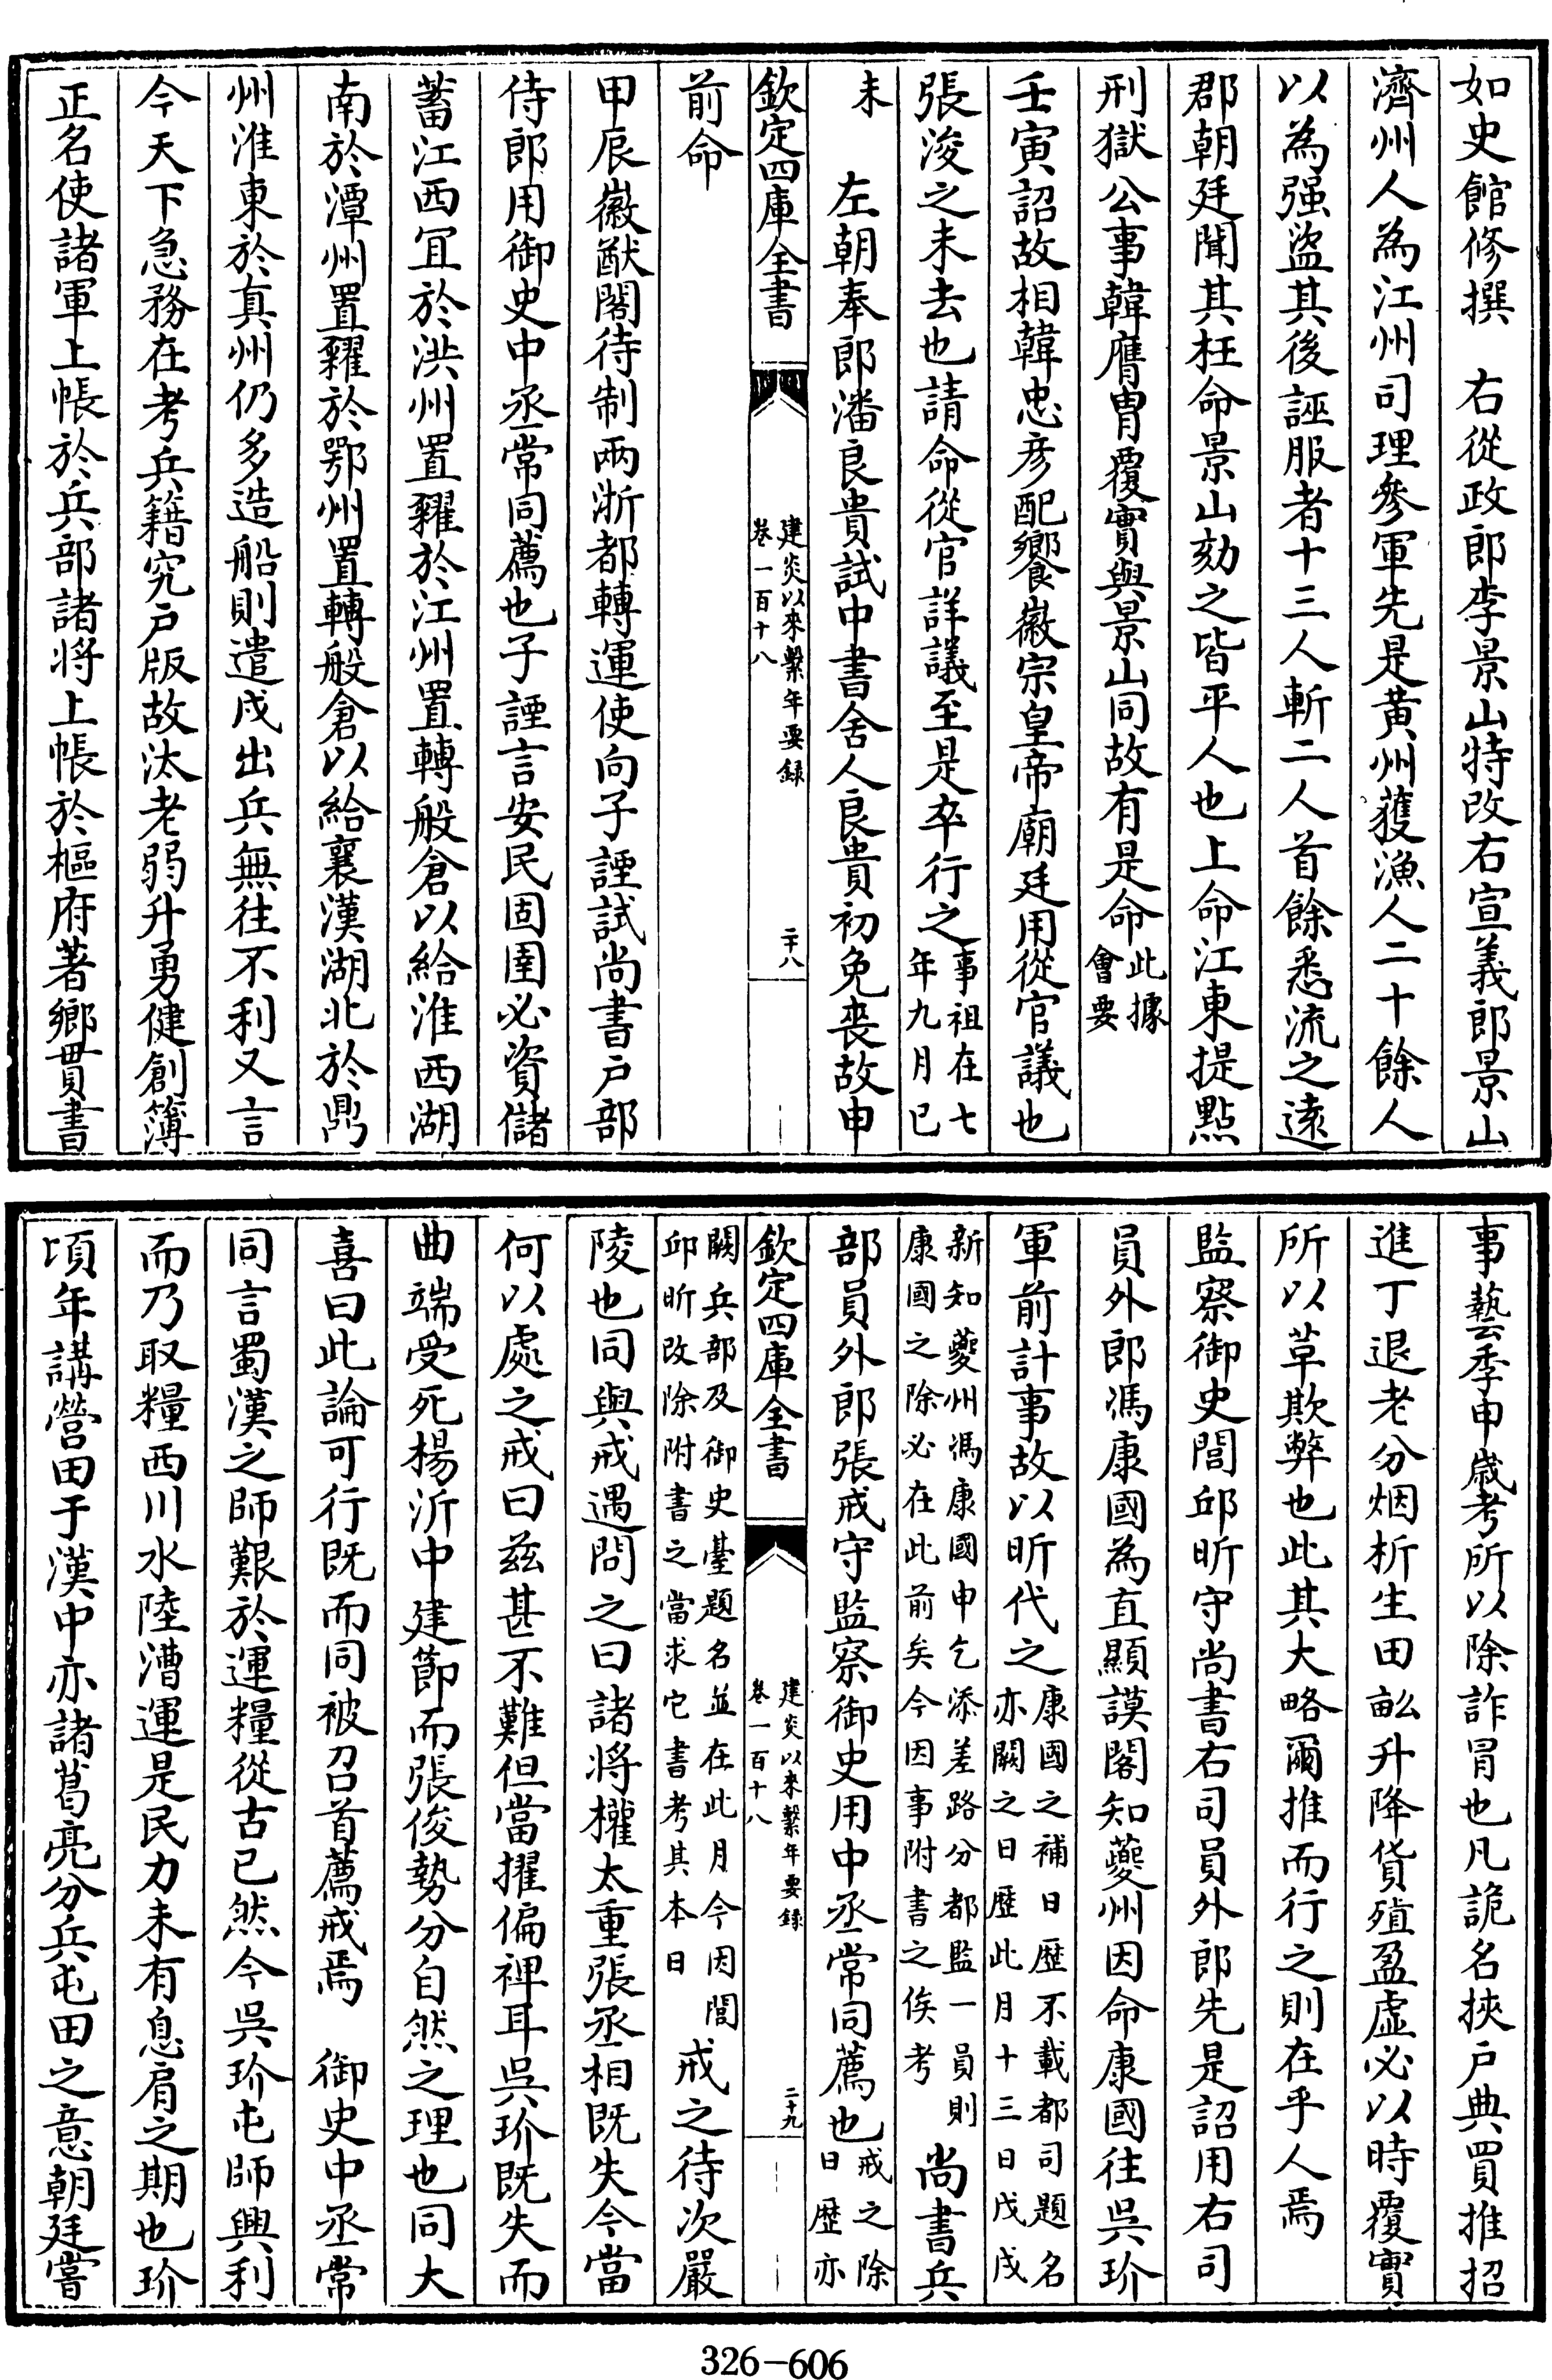 如史館修撰　右從政郎李景山特改右宣義郎景山
濟州人為江州司理參軍先是黄州獲漁人二十餘人
以為强盜其後誣服者十三人斬二人首餘悉流之逺
郡朝廷聞其枉命景山劾之皆平人也上命江東提點
刑獄公事韓膺胄覆實與景山同故有是命此據
會要
壬寅詔故相韓忠彦配饗徽宗皇帝廟廷用從官議也
張浚之未去也請命從官詳議至是卒行之事祖在七
年九月已
未
左朝奉郎潘良貴試中書舍人良貴初免喪故申
欽定四庫全書
建炎以來繫年要録
卷一百十八
二十八
前命
甲辰徽猷閣待制兩浙都轉運使向子諲試尚書户部
侍郎用御史中丞常同薦也子諲言安民固圉必資儲
蓄江西宜於洪州置糴於江州置轉般倉以給淮西湖
南於潭州置糴於鄂州置轉般倉以給襄漢湖北於鼎
州淮東於真州仍多造船則遣戍出兵無往不利又言
今天下急務在考兵籍究户版故汰老弱升勇健創簿
正名使諸軍上帳於兵部諸將上帳於樞府著鄉貫書
事藝季申歲考所以除詐冒也凡詭名挾户典買推招
進丁退老分烟析生田畝升降貨殖盈虚必以時覆實
所以革欺弊也此其大略爾推而行之則在乎人焉
監察御史閭邱昕守尚書右司員外郎先是詔用右司
員外郎馮康國為直顯謨閣知夔州因命康國往吳玠
軍前計事故以昕代之康國之補日歴不載都司題名
亦闕之日歴此月十三日戊戌
新知夔州馮康國申乞添差路分都監一員則
康國之除必在此前矣今因事附書之俟考
尚書兵
部員外郎張戒守監察御史用中丞常同薦也戒之除
日歴亦
欽定四庫全書
建炎以來繫年要録
卷一百十八
二十九
闕兵部及御史臺題名並在此月今因閭
邱昕改除附書之當求它書考其本日
戒之待次嚴
陵也同與戒遇問之曰諸將權太重張丞相既失今當
何以處之戒曰兹甚不難但當擢偏裨耳吳玠既失而
曲端受死楊沂中建節而張俊勢分自然之理也同大
喜曰此論可行既而同被召首薦戒焉　御史中丞常
同言蜀漢之師艱於運糧從古已然今吳玠屯師興利
而乃取糧西川水陸漕運是民力未有息肩之期也玠
頃年講營田于漢中亦諸葛亮分兵屯田之意朝廷嘗
326-606